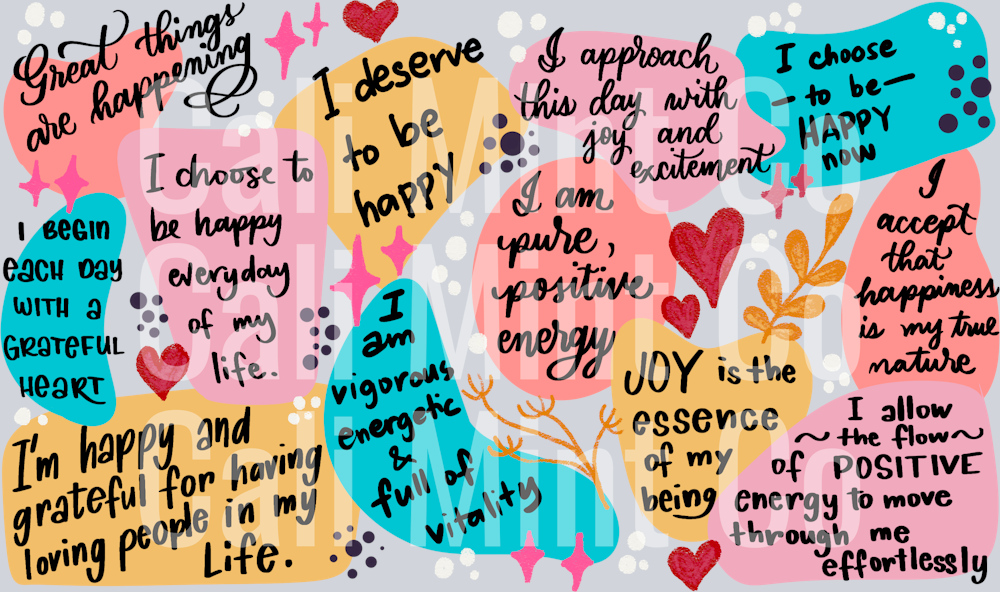 Great things
are happening
I deserve
to be
happy
I approach
this day with
joy and
excitement
I choose
- to be -
HAPPY
now
I choose to
be happy
everyday
of my
life.
I BEGIN
EACH DAY
WITH A
GRATEFUL
HEART
I am
pure,
positive
energy
I
accept
that
happiness
is my true
nature
I
am
vigorous
energetic
&
full of
vitality
JOY is the
essence
of my
being
I'm happy and
grateful for having
loving people in my
Life.
I allow
~ the flow ~
of POSITIVE
energy to move
through me
effortlessly
Cali Mint Co
Cali Mint Co
Cali Mint Co
Cali Mint Co